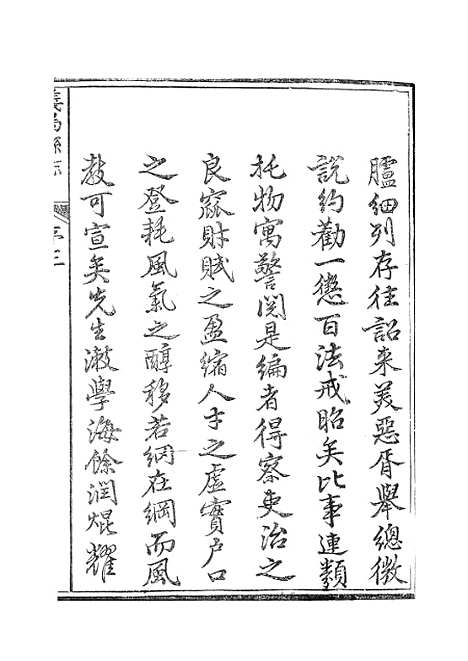 臚細列存往詔来美惡胥舉總微
說約勸一懲百法戒昭矣比事連類
托物寓警閱是編者得察吏治之
良窳財賦之盈縮人才之虛實户口
之登耗風氣之醇移若網在綱而風
教可宣矣先生漱學海餘润焜耀
義烏縣志